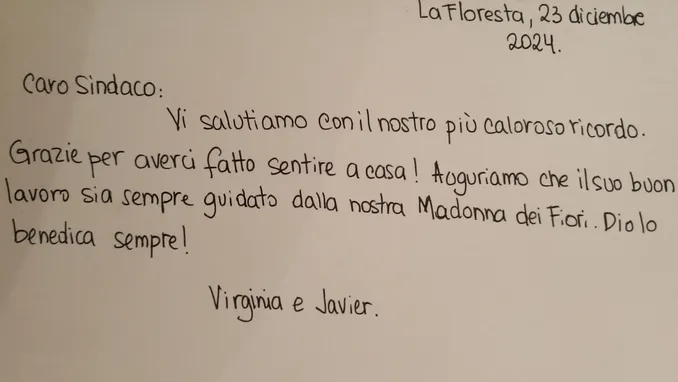 La Floresta, 23 diciembre
2024.
Caro Sindaco:
Vi salutiamo con il nostro più caloroso ricordo.
Grazie per averci fatto sentire a casa! Auguriamo che il suo buon
lavoro sia sempre guidato dalla nostra Madonna dei Fiori. Dio lo
benedica sempre!
Virginia e Javier.